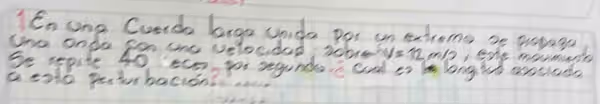 1 En una Cuerda larga unida por un extremo se propaga
una onda con una velocidad sobre V=12 m/s, este movimiento
Se repite 40 veces por segundo ¿ cual es la longitud asociada
a esta perturbación?